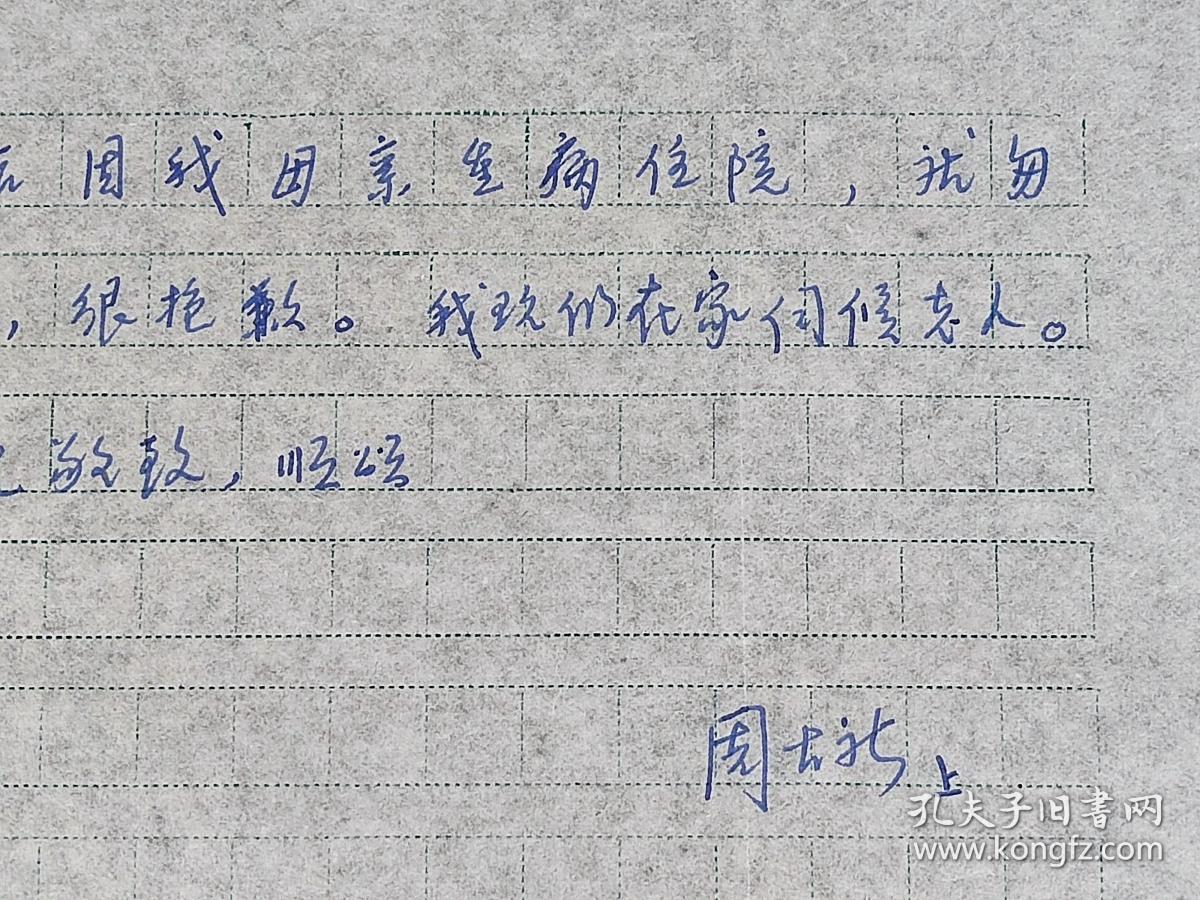 因我母亲生病住院，就匆
，很抱歉。我现仍在家伺候老人。
敬致，顺颂
周大新上
孔夫子旧書网
www.kongfz.com